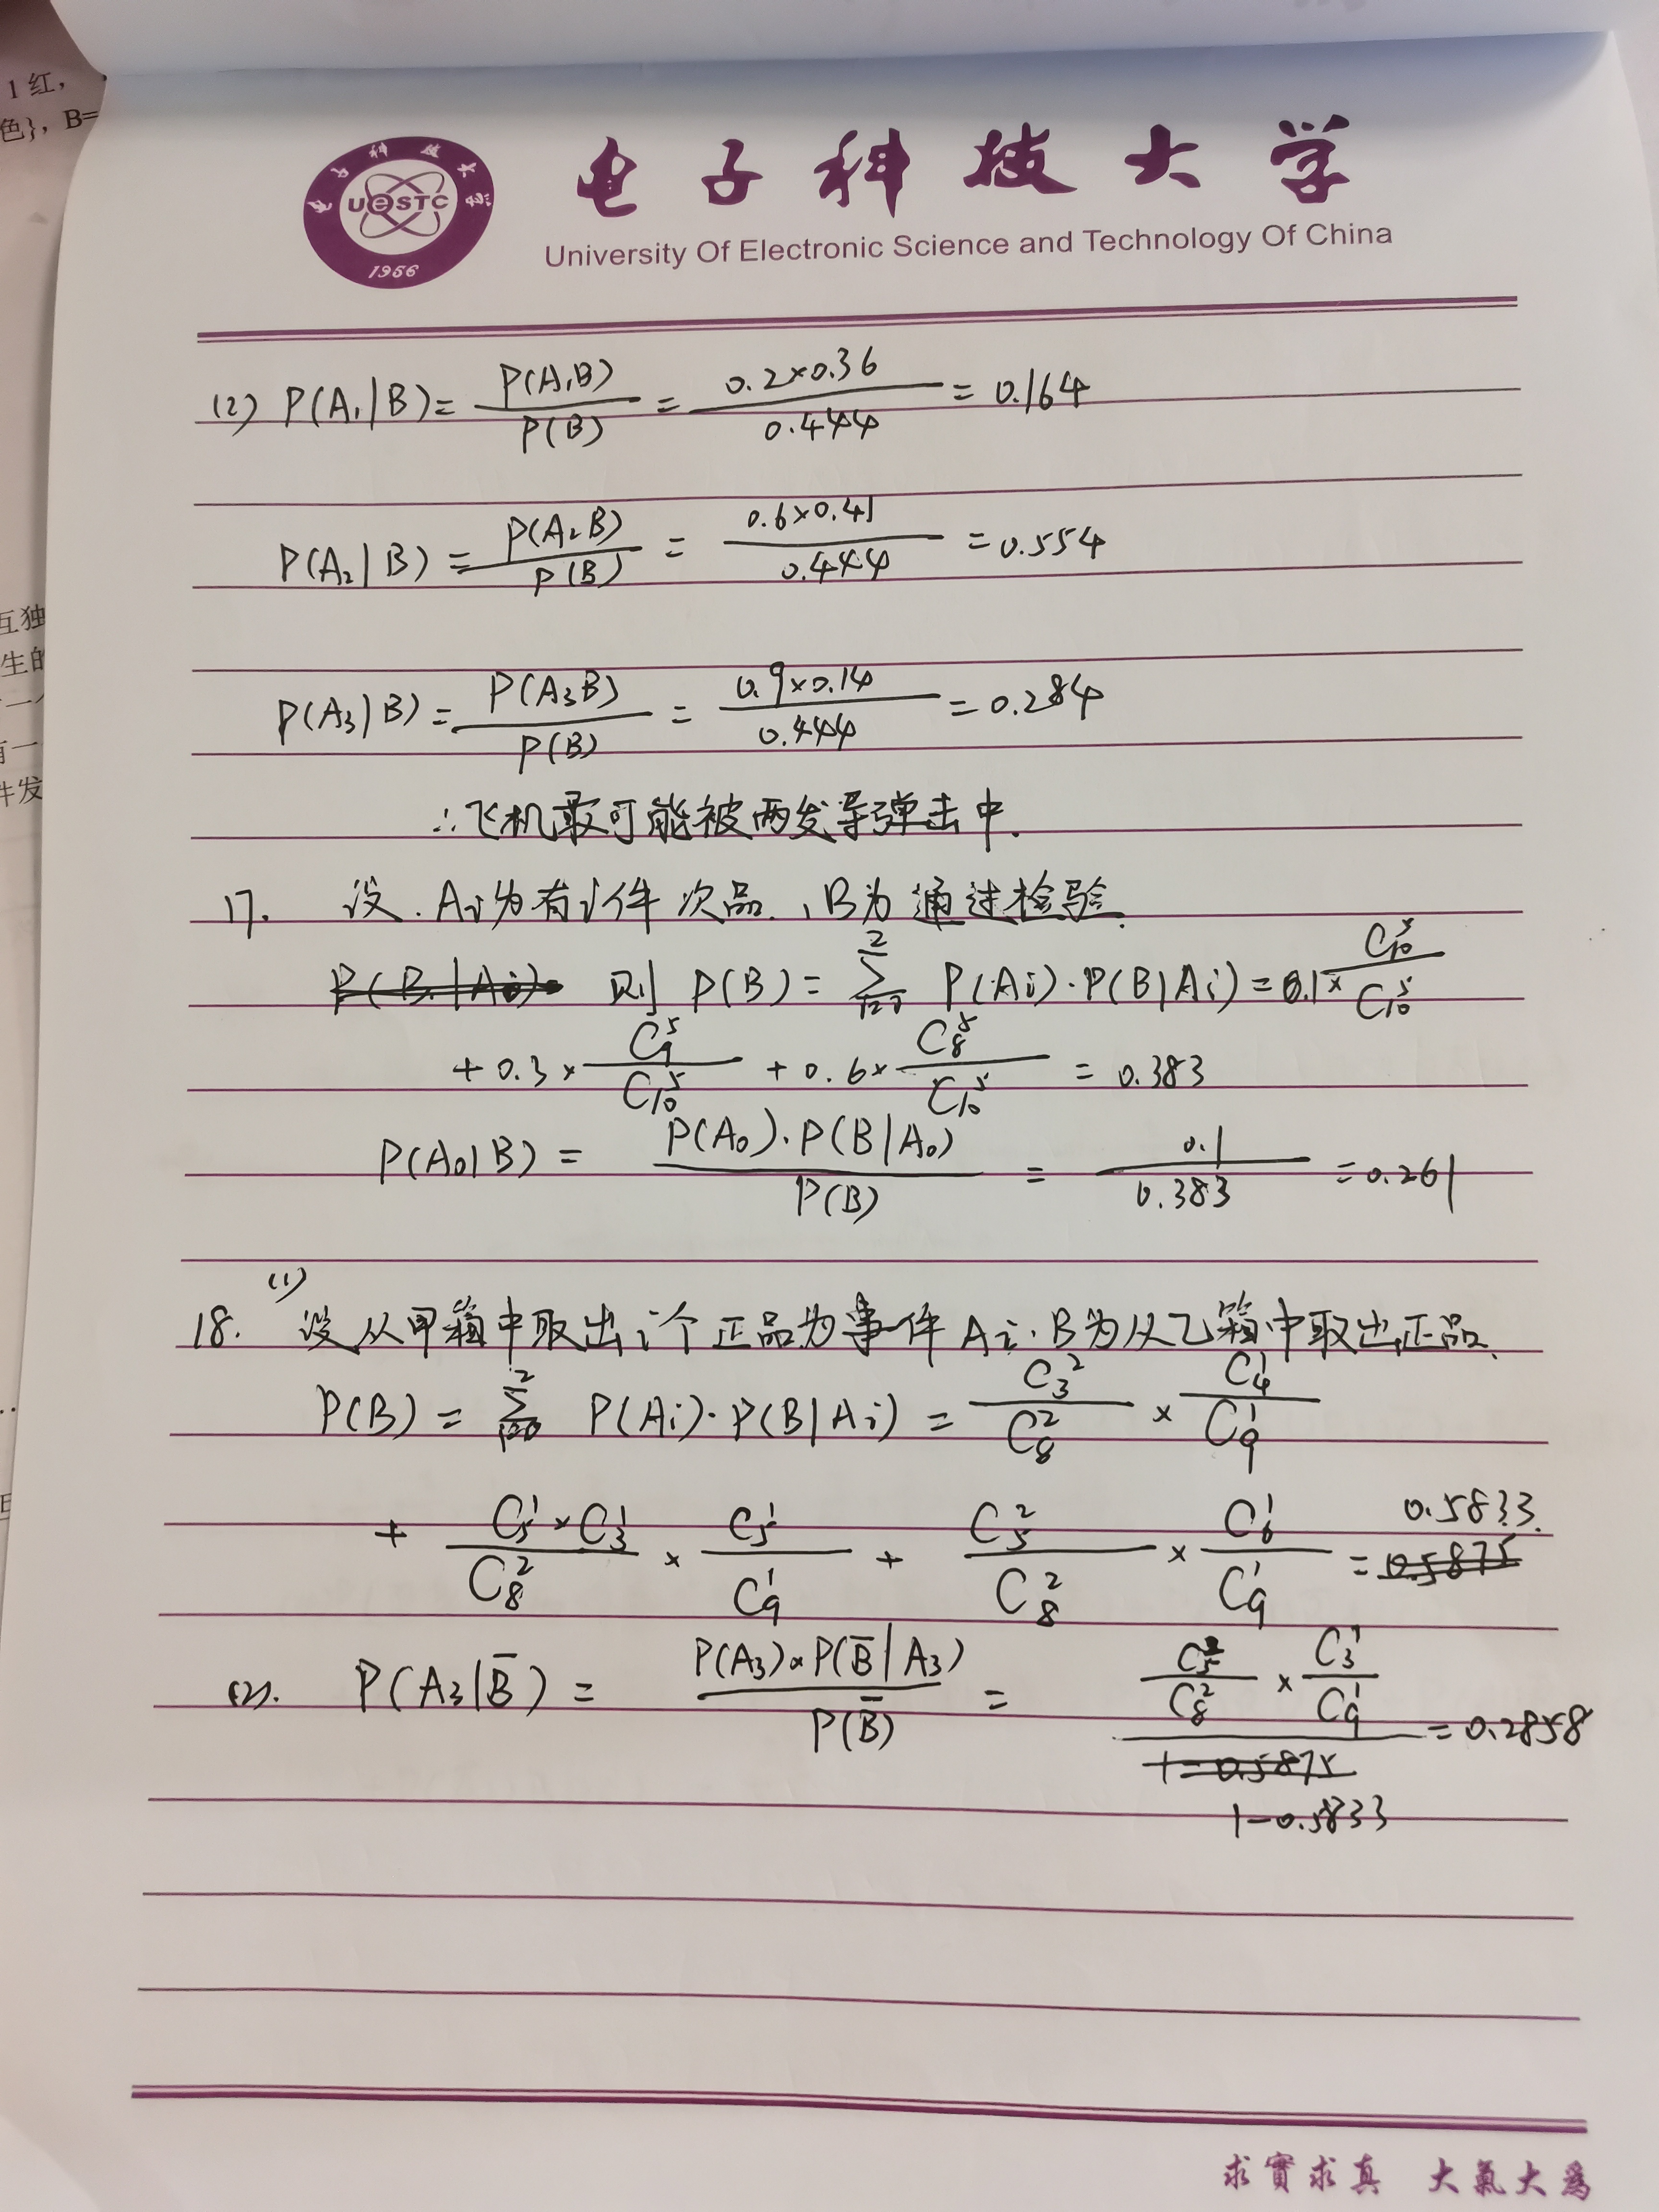 1红,
色}, B=
电子科技大学
UeSTC
1956
University Of Electronic Science and Technology Of China
(2) P(A₁|B) = P(A₁B)/P(B) = 0.2×0.36/0.444 = 0.164
P(A₂|B) = P(A₂B)/P(B) = 0.6×0.41/0.444 = 0.554
P(A₃|B) = P(A₃B)/P(B) = 0.9×0.14/0.444 = 0.284
∴飞机最可能被两发导弹击中.
17. 设.Ai为有i件次品.,B为通过检验.
则 P(B) = Σ P(Ai)·P(B|Ai) = 0.1× C₁₀⁵/C₁₀⁵
+ 0.3× C₉⁵/C₁₀⁵ + 0.6× C₈⁵/C₁₀⁵ = 0.383
P(A₀|B) = P(A₀)·P(B|A₀)/P(B) = 0.1/0.383 = 0.261
18. (1) 设从甲箱中取出i个正品为事件Ai.B为从乙箱中取出正品.
P(B) = Σ P(Ai)·P(B|Ai) = C₃²/C₈² × C₄¹/C₉¹
+ C₅¹×C₃¹/C₈² × C₅¹/C₉¹ + C₅²/C₈² × C₆¹/C₉¹ = 0.5833.
(2). P(A₃|B̄) = P(A₃)×P(B̄|A₃)/P(B̄) = C₅²/C₈² × C₃¹/C₉¹ / 1-0.5833 = 0.2858
互独
生的
一个
有一
件发
求實求真 大氣大爲